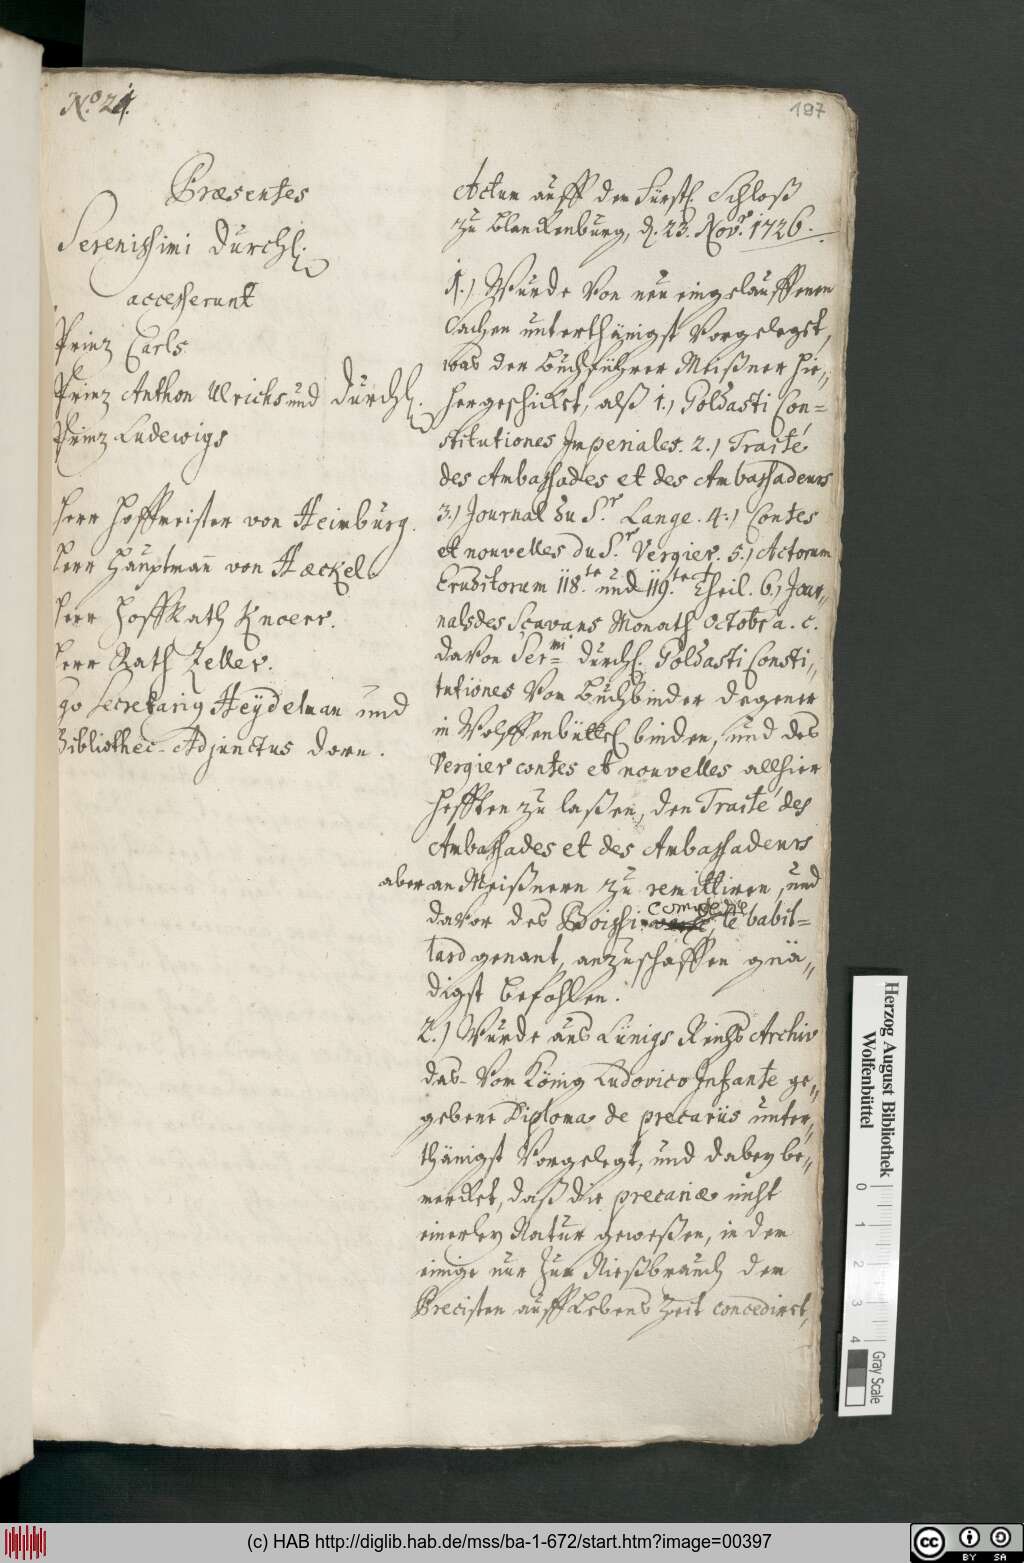 No. 21.
197
Præsentes
Serenissimi Durchl.
accesserunt
Prinz Carls
Prinz Anthon Ulrichs und Durchl.
Prinz Ludewigs
Herr Hoffmeister von Heimburg.
Herr Hauptmann von Hæckel.
Herr HoffRath Knoerr.
Herr Rath Zeller.
Secretarig Heydelman und
Bibliothec-Adjunctus Dorn.
Actum auff dem Fürstl. Schloß
zu Blanckenburg, d. 23. Novr. 1726.
1.) Wurde von neu eingelauffenen
Sachen unterthänigst vorgelegt,
was der Buchführer Meißner hie„
hergeschickt, alß 1.) Goldasti Con=
stitutiones Imperiales. 2.) Traité
des Ambassades et des Ambassadeurs
3.) Journal du Sr. Lange. 4.) Contes
et nouvelles du Sr. Vergier. 5.) Actorum
Eruditorum 118.te und 119.te Theil. 6.) Jour„
nals des Scavans Monath Octobr a. c.
davon Sermi Durchl. Goldasti Consti„
tutiones vom Buchbinder Degener
in Wolffenbüttel binden, und des
Vergier contes et nouvelles allhier
hefften zu laßen, den Traité des
Ambassades et des Ambassadeurs
aber an Meißnern zu remittiren, und
davor des Boissi comedie, le babil=
lard genant, anzuschaffen gnä„
digst befohlen.
2.) Wurde aus Lünigs Reichs Archiv
das vom König Ludovico Infante ge„
gebene Diploma de precariis unter„
thänigst vorgelegt, und dabey be„
mercket, daß die precariæ nicht
einerley Natur geweßen, in dem
einige nur zum Nießbrauch dem
Precisten auff Lebens Zeit concediret,
Herzog August Bibliothek
Wolfenbüttel
0 1 2 3 4
Gray Scale
(c) HAB http://diglib.hab.de/mss/ba-1-672/start.htm?image=00397
cc BY SA